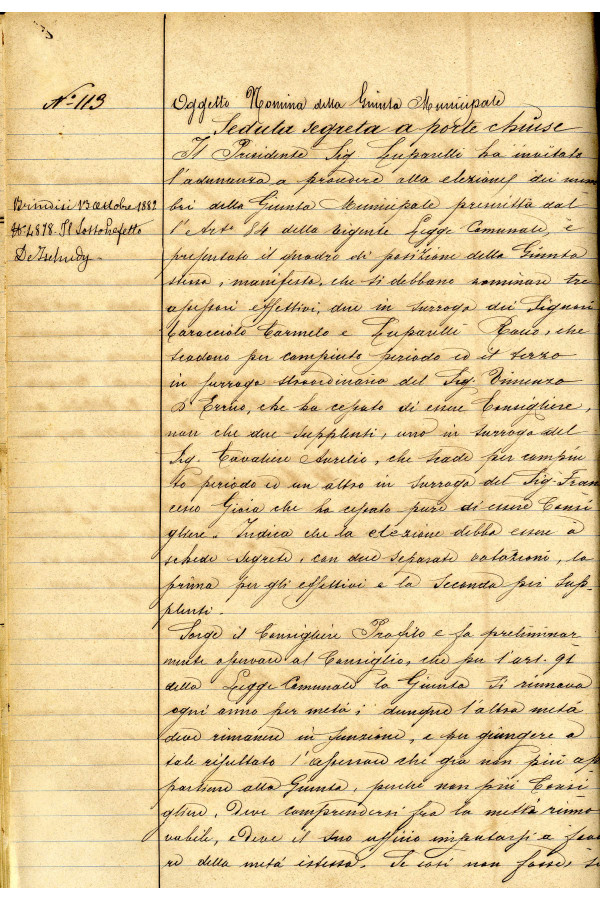 N.º 113
Oggetto Nomina della Giunta Municipale
Seduta segreta a porte chiuse
Il Presidente Sig. Cuparelli ha invitato
l'adunanza a provedere alla elezione dei mem
bri della Giunta Municipale prescritta dal
l'Art.º 84 della vigente Legge Comunale, e
presentato il quadro di posizione della Giunta
stessa, manifesta, che si debbano nominare tre
assessori effettivi, due in surroga dei Signori
Caracciolo Carmelo e Cuparelli che
scadono per compiuto periodo ed il terzo
in surroga straordinaria del Sig. Vincenzo
D'Errico, che ha cessato di essere Consigliere,
non che due supplenti, uno in surroga del
Sig. Cavaliere Aurelio, che scade per compiu
to periodo ed un altro in surroga del Sig. Fran
cesco Gioia che ha cessato pure di essere Consi
gliere. Indica che la elezione debba essere a
schede segrete, con due separate votazioni, la
prima per gli effettivi e la seconda pei Sup-
plenti.
Sorge il Consigliere Profilo e fa preliminar
mente osservare al Consiglio, che per l'art. 91
della Legge Comunale la Giunta si rinnova
ogni anno per metà; dunque l'altra metà
deve rimanere in funzione, e per giungere a
tale risultato l'assessore che già non più ap
partiene alla Giunta, perchè non più Consi
gliere, deve comprendersi fra la mettà rinno
vabile, e deve il suo ufficio imputarsi a favo
re della metà istessa. Se così non fosse, si
Brindisi 13 Ottobre 1882
N.º 4878. Il Sottoprefetto